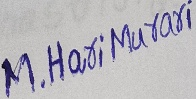 M. Hari Murari